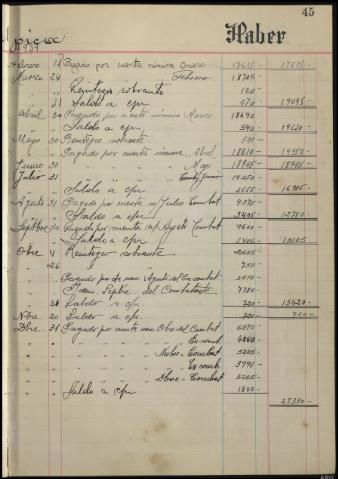 45
Haber
1939
Febrero 28 Pagado por cuenta nómina Enero 17615- 17615-
Marzo 24 " " " " Febrero 18705
" " Reintegro sobrante 120
" 31 Saldo a c/n 270 19095-
Abril 30 Pagado por cuenta nómina Marzo 18690
" " Saldo a c/n 540 19230-
Mayo 30 Reintegro sobrante 540-
" " Pagado por cuenta nómina Abril 18810- 19350-
Junio 30 " " " " Mayo 18945- 18945-
Julio 31 " " " " Junio 14250-
" " Saldo a c/n 2655 16905-
Agosto 31 Pagado por cuenta n/ Julio Combat 9375-
" " Saldo a c/n 3405 12780-
Sepbre 30 Pagado por cuenta n/ Agosto Combat 9600-
" " Saldo a c/n 3405
Obre 4 Reintegro sobrante 2655-
" 26 " " 750-
" " Pagado por cuenta nom. Agosto del Ex combat
" " " " nom. Sepbre del Combatiente 7785-
" 30 Saldo a c/n 720 15420-
Nbre 30 Saldo a c/n 720- 720-
Dbre 31 Pagado por cuenta nom. Obre del Combat 6270
" " " " " " Ex comb. 4260-
" " " " Nvbre - Combat 5205-
" " " " " Ex comb. 3990-
" " " " Dbre - Combat 5205-
" " Saldo a c/n
27330-